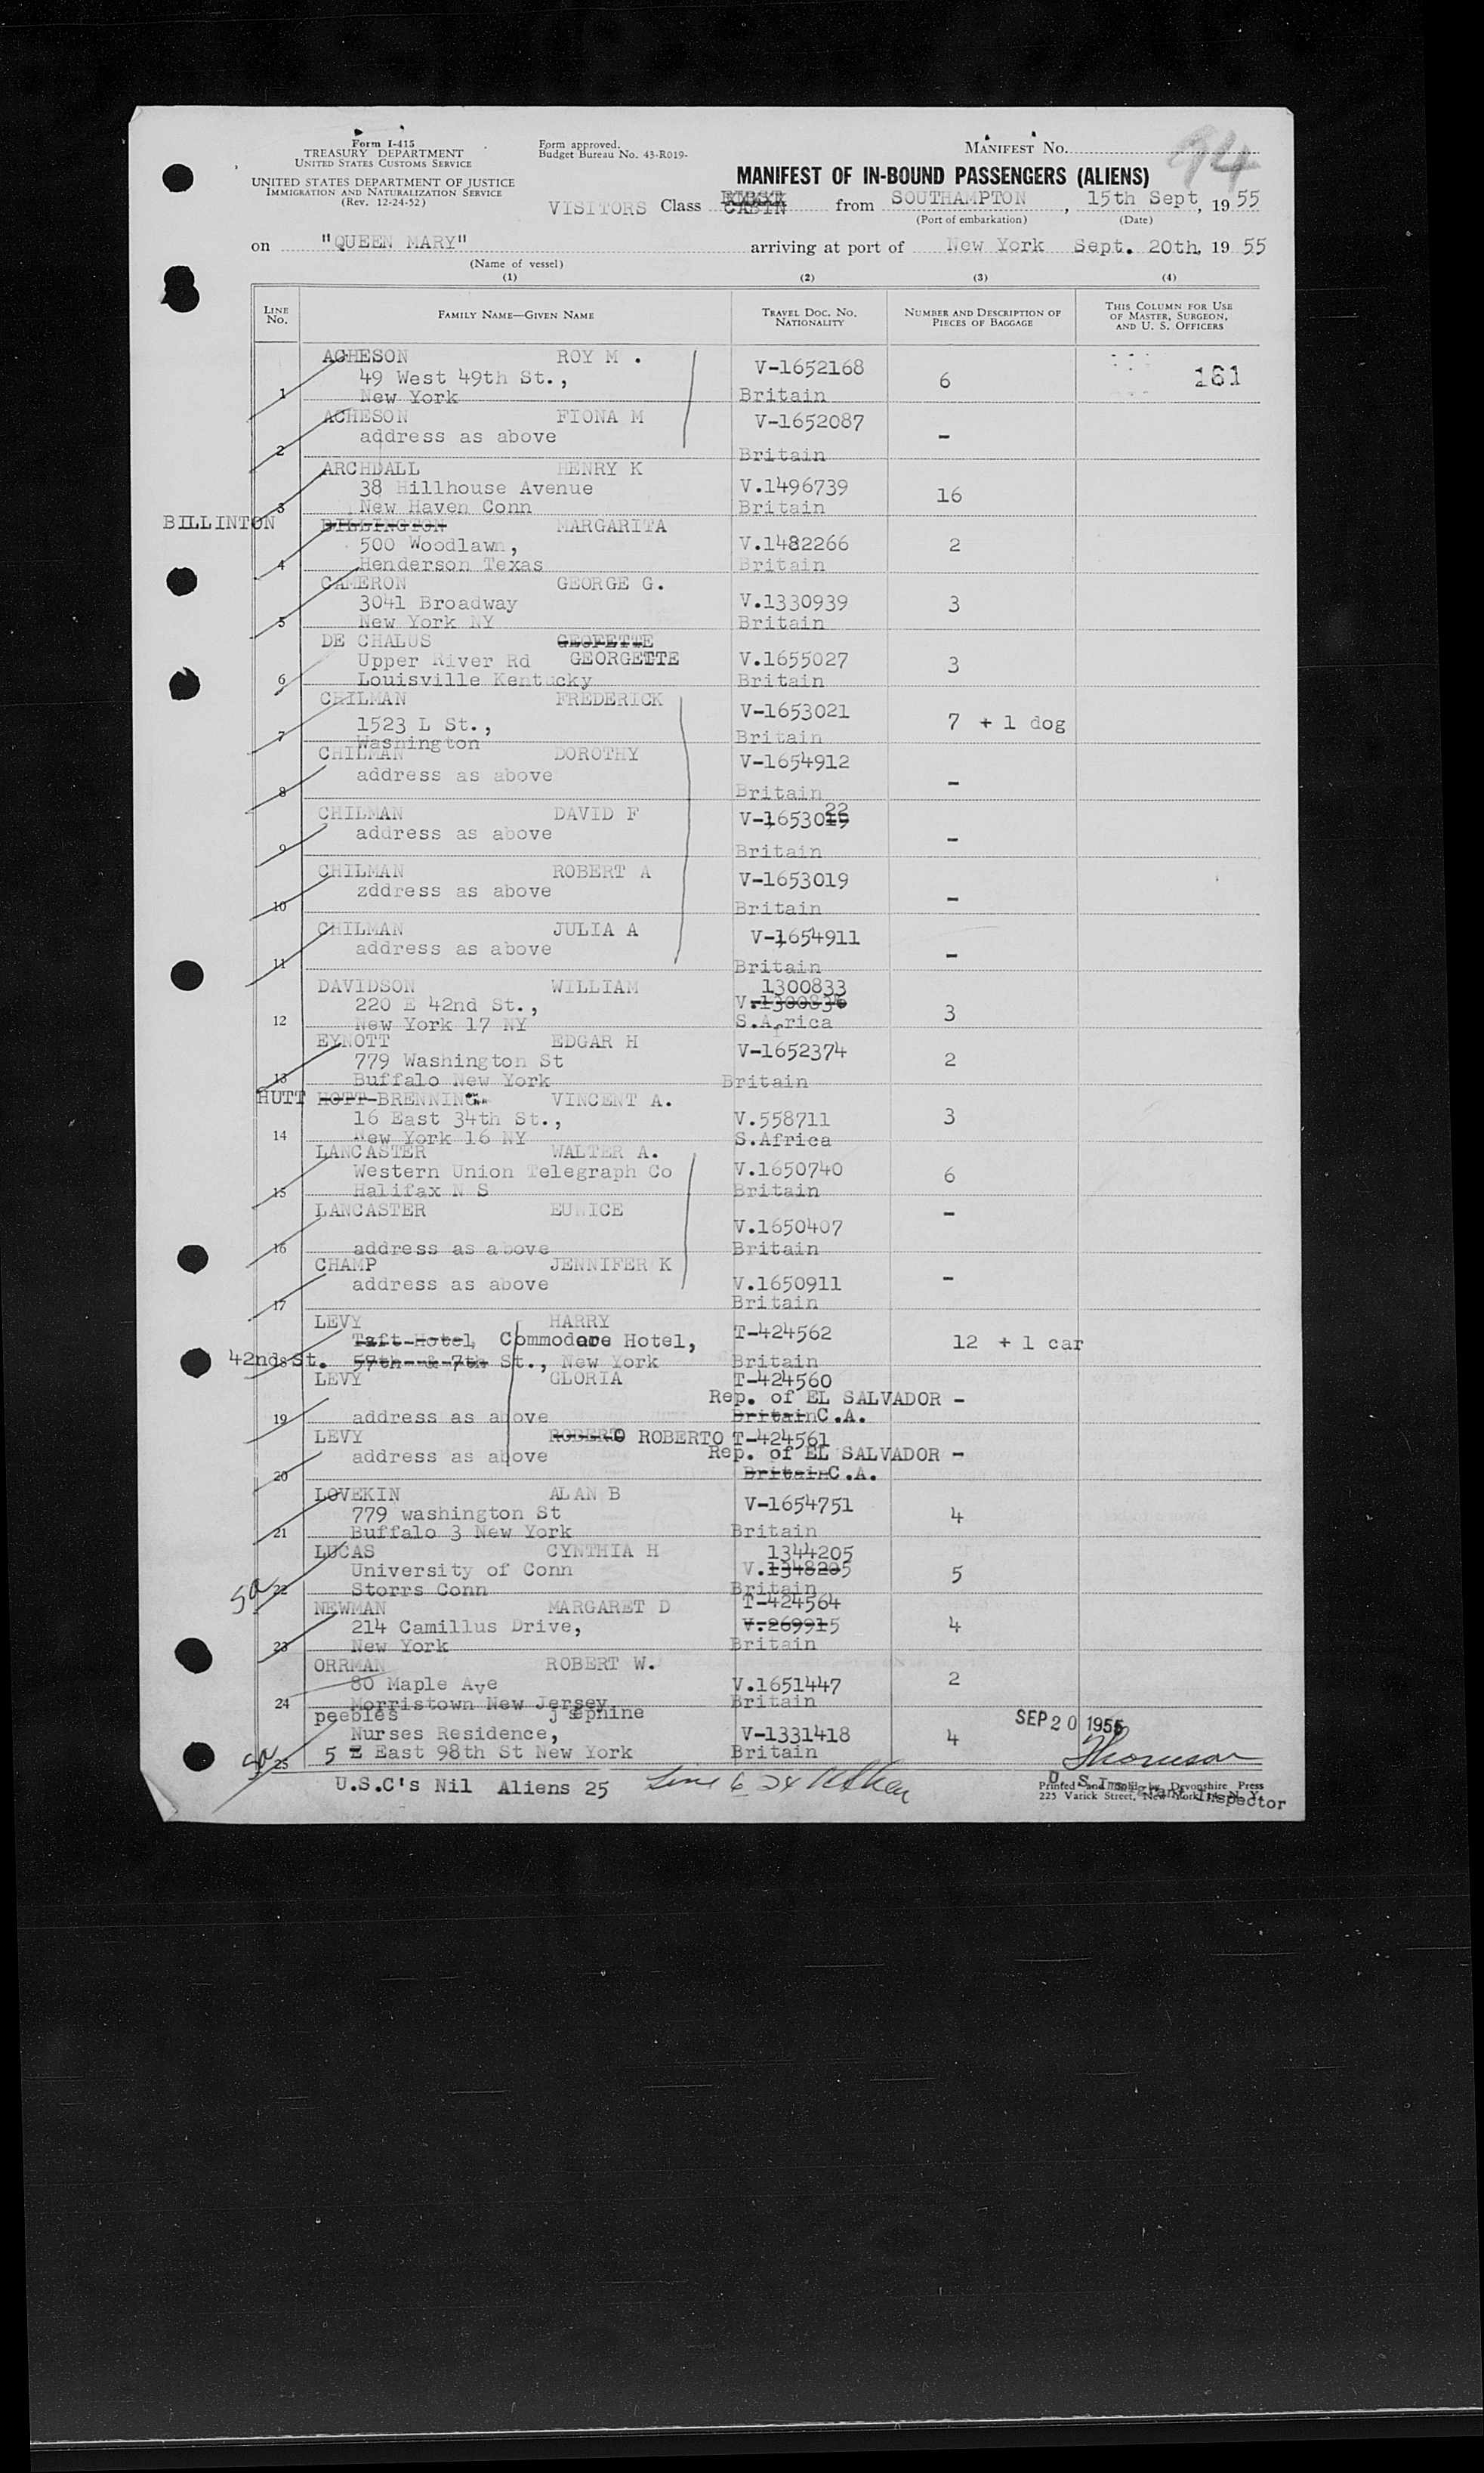 Form I-415
TREASURY DEPARTMENT
UNITED STATES CUSTOMS SERVICE
UNITED STATES DEPARTMENT OF JUSTICE
IMMIGRATION AND NATURALIZATION SERVICE
(Rev. 12-24-52)
Form approved.
Budget Bureau No. 43-R019-
MANIFEST No. 94
MANIFEST OF IN-BOUND PASSENGERS (ALIENS)
VISITORS Class CABIN from SOUTHAMPTON, 15th Sept, 1955
(Port of embarkation) (Date)
on "QUEEN MARY" arriving at port of New York Sept. 20th, 1955
(Name of vessel)
(1) (2) (3) (4)
LINE No. FAMILY NAME—GIVEN NAME TRAVEL DOC. NO. NATIONALITY NUMBER AND DESCRIPTION OF PIECES OF BAGGAGE THIS COLUMN FOR USE OF MASTER, SURGEON, AND U. S. OFFICERS
ACHESON ROY M .
49 West 49th St., V-1652168 6 161
1 New York Britain
ACHESON FIONA M V-1652087
address as above -
2 Britain
ARCHDALL HENRY K
38 Hillhouse Avenue V.1496739 16
3 New Haven Conn Britain
BILLINTON BILLINGTON MARGARITA
500 Woodlawn, V.1482266 2
4 Henderson Texas Britain
CAMERON GEORGE G.
3041 Broadway V.1330939 3
5 New York NY Britain
DE CHALUS GEOFETTE
Upper River Rd GEORGETTE V.1655027 3
6 Louisville Kentucky Britain
CHILMAN FREDERICK V-1653021
1523 L St., 7 + 1 dog
7 Washington Britain
CHILMAN DOROTHY V-1654912
address as above -
8 Britain
CHILMAN DAVID F 22
address as above V-1653019 -
9 Britain
CHILMAN ROBERT A V-1653019
zddress as above -
10 Britain
CHILMAN JULIA A V-1654911
address as above -
11 Britain
DAVIDSON WILLIAM 1300833
220 E 42nd St., V.1300836 3
12 New York 17 NY S.Africa
EYNOTT EDGAR H V-1652374
779 Washington St 2
13 Buffalo New York Britain
HUTT HOTT-BRENNING VINCENT A.
16 East 34th St., V.558711 3
14 New York 16 NY S.Africa
LANCASTER WALTER A.
Western Union Telegraph Co V.1650740 6
15 Halifax N S Britain
LANCASTER EUNICE -
V.1650407
16 address as above Britain
CHAMP JENNIFER K
address as above V.1650911 -
17 Britain
LEVY HARRY T-424562
Taft-Hotel, Commodore Hotel, 12 + 1 car
42nd St. 57th & 7th St., New York Britain
LEVY GLORIA T-424560
Rep. of EL SALVADOR -
19 address as above Britain C.A.
LEVY ROBERTO ROBERTO T-424561
address as above Rep. of EL SALVADOR -
20 Britain C.A.
LOVEKIN ALAN B V-1654751
779 washington St 4
21 Buffalo 3 New York Britain
LUCAS CYNTHIA H 1344205
University of Conn V.1348205 5
22 Storrs Conn Britain
NEWMAN MARGARET D T-424564
214 Camillus Drive, V.269915 4
23 New York Britain
ORRMAN ROBERT W.
80 Maple Ave V.1651447 2
24 Morristown New Jersey Britain
peebles j sephine SEP 20 1955
Nurses Residence, V-1331418 4
25 5 E East 98th St New York Britain Thomson
U.S.C's Nil Aliens 25 Line 6 24
U. S. Immigrant Inspector
Printed and Sold by Devonshire Press
225 Varick Street, New York 14, N. Y.